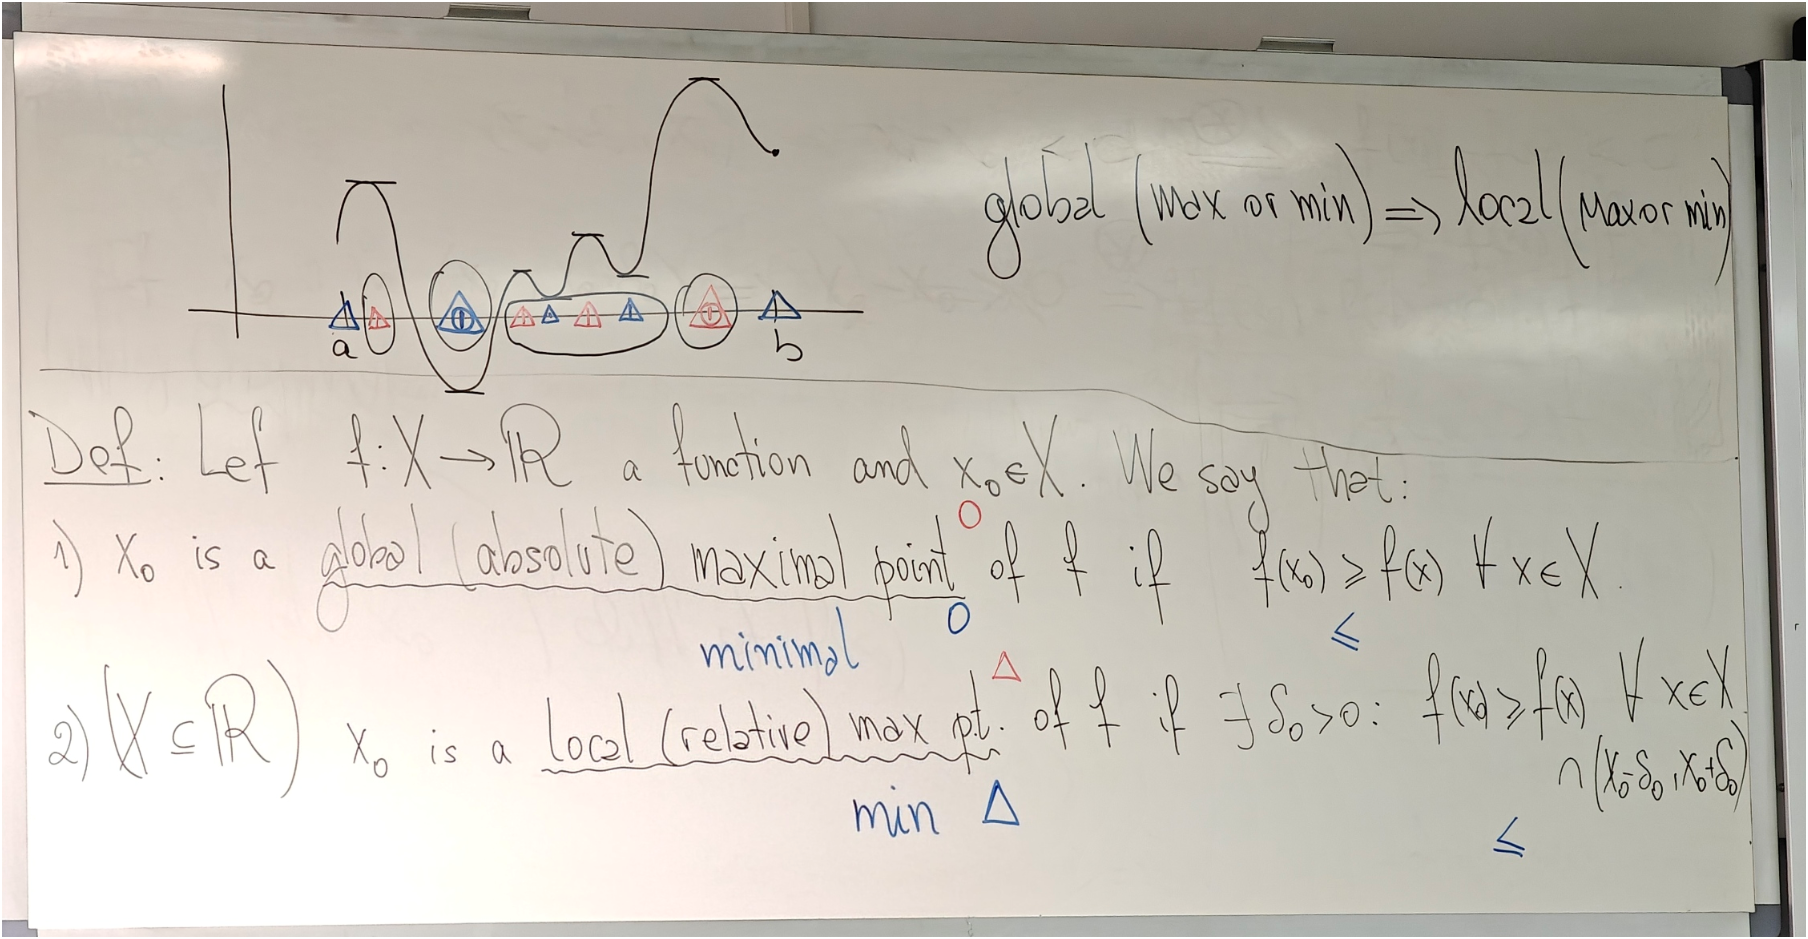 global (max or min) => local (max or min)
a b
Def: Let f: X → ℝ a function and x₀ ∈ X. We say that:
1) x₀ is a global (absolute) maximal point of f if f(x₀) ≥ f(x) ∀ x ∈ X.
minimal ≤
2) (X ⊆ ℝ) x₀ is a local (relative) max pt. of f if ∃ δ₀ > 0: f(x₀) ≥ f(x) ∀ x ∈ X
∩ (x₀-δ₀, x₀+δ₀)
min ≤